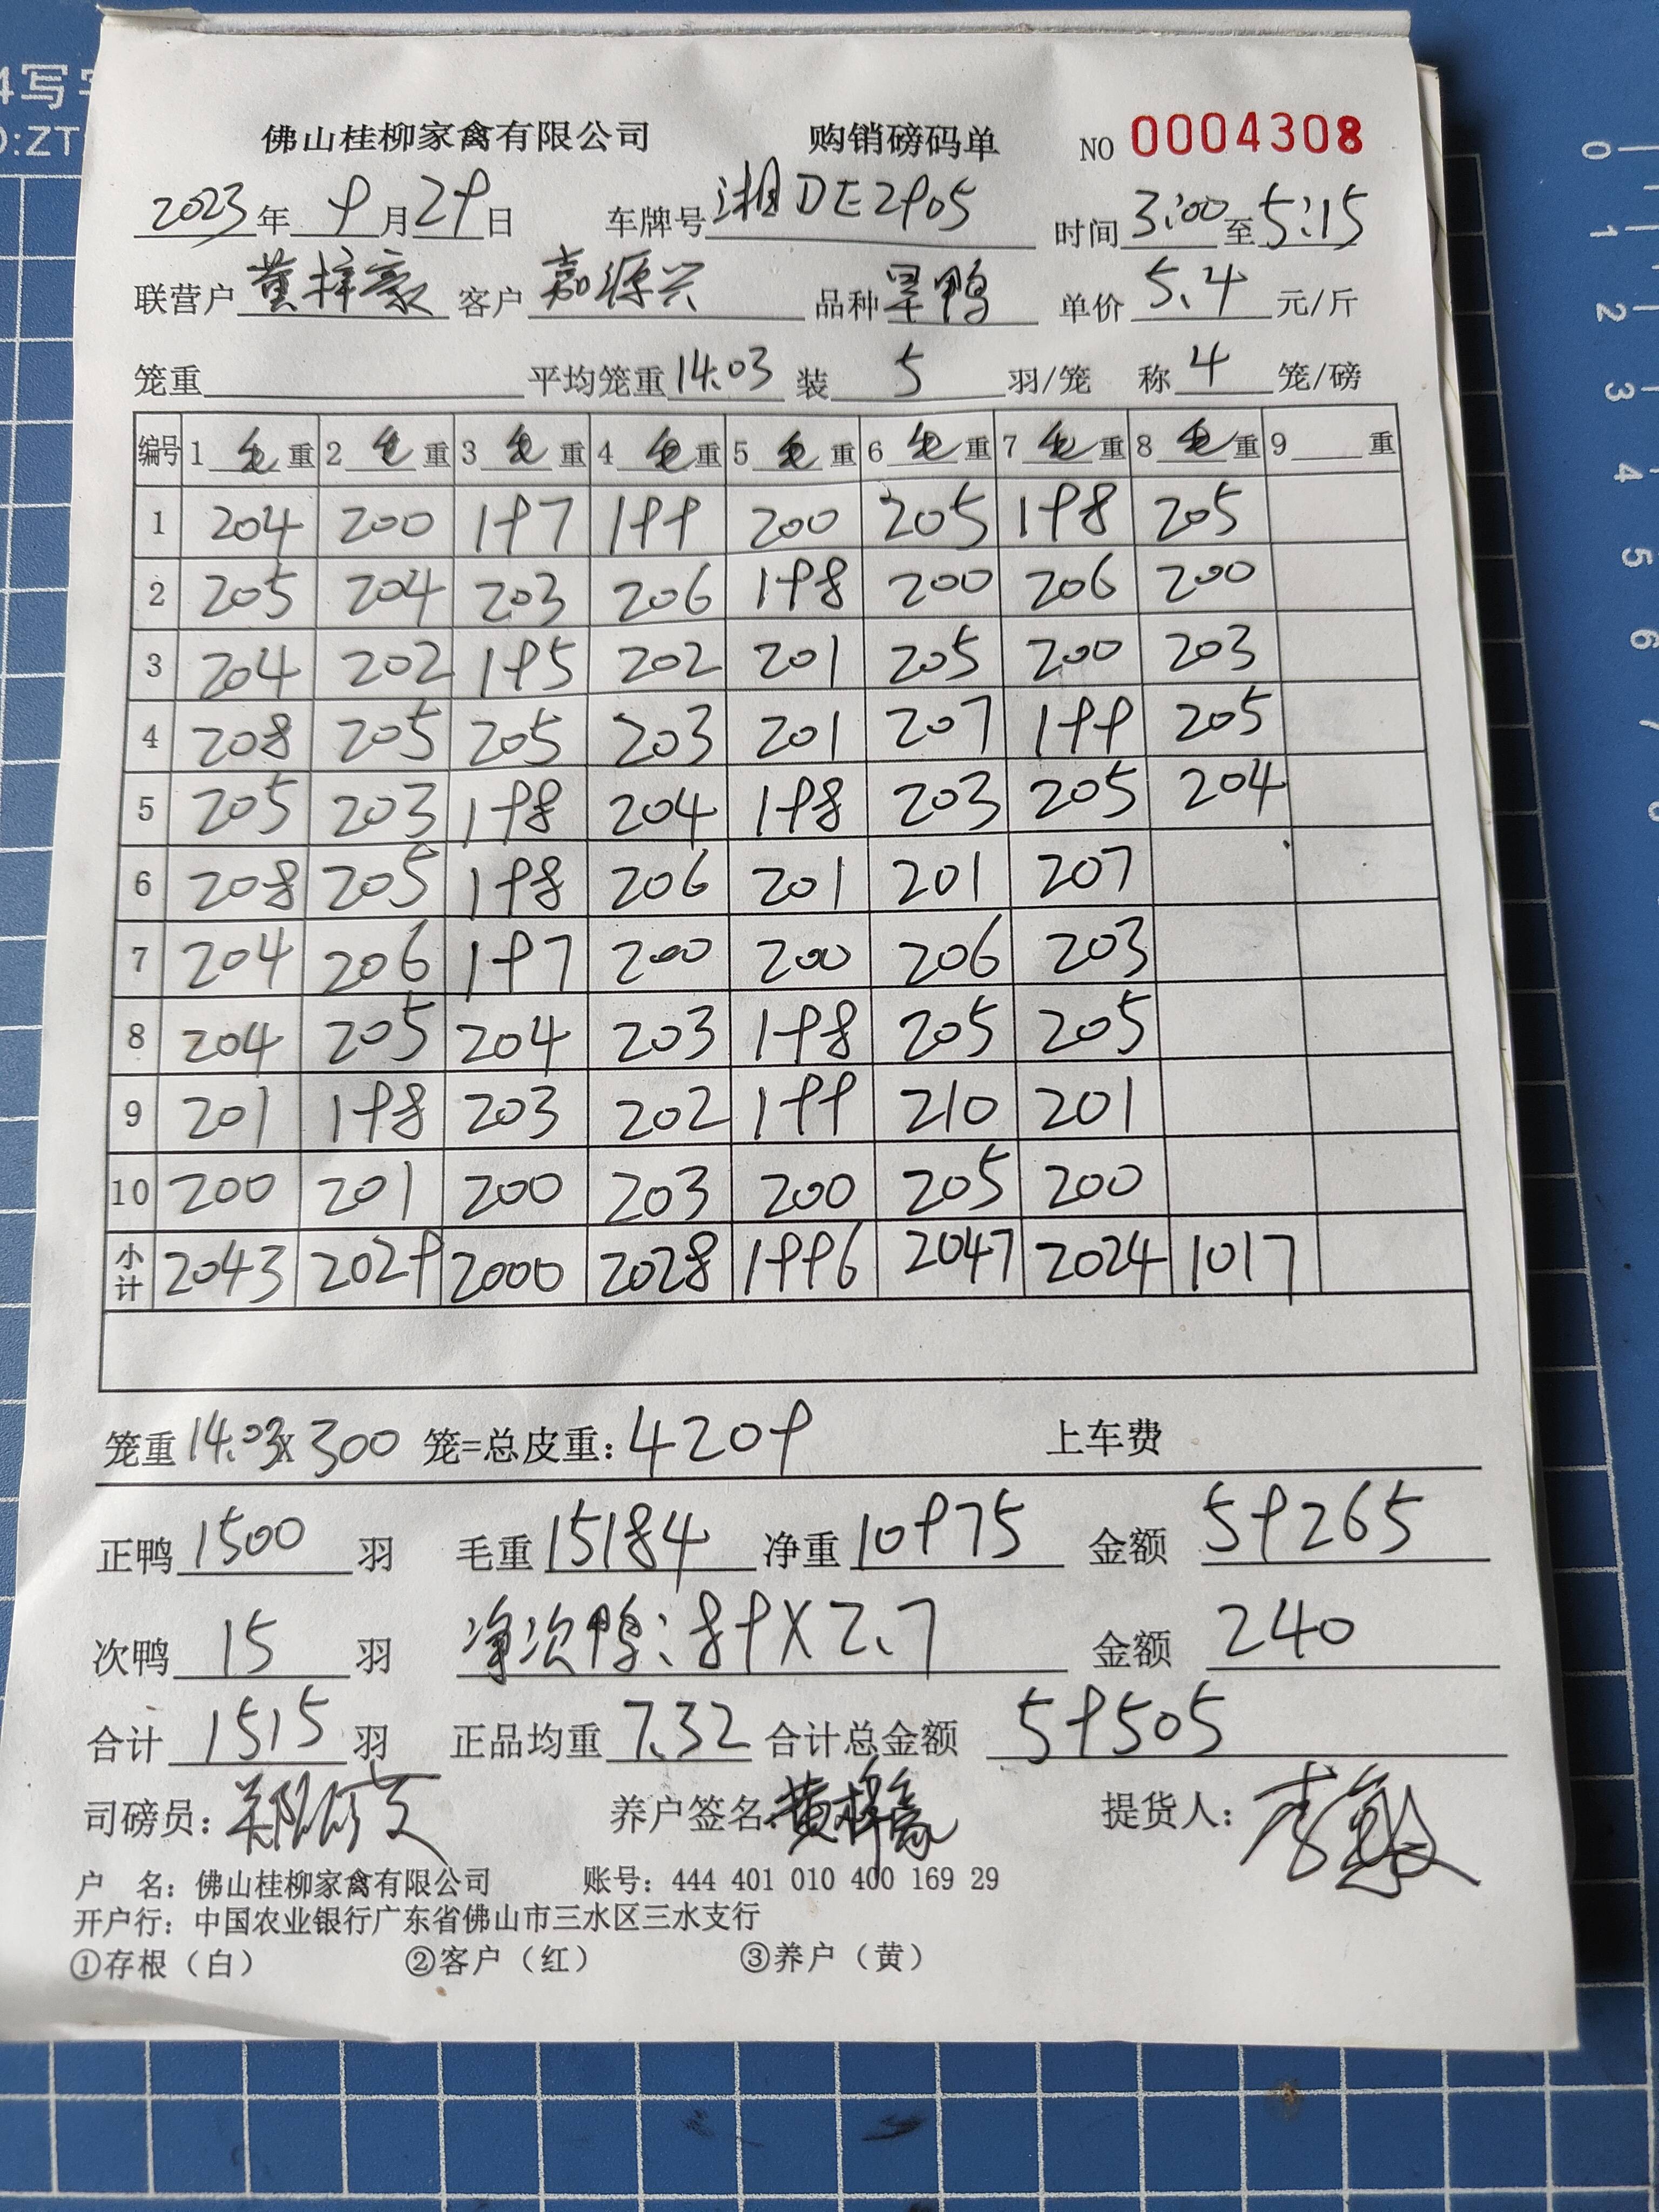 4写字
D:ZT
佛山桂柳家禽有限公司 购销磅码单 NO 0004308
2023年9月29日 车牌号湘DE2905 时间3:00至5:15
联营户黄梓豪 客户嘉源兴 品种旱鸭 单价5.4元/斤
笼重 平均笼重14.03 装5羽/笼 称4笼/磅
编号 1毛重 2毛重 3毛重 4毛重 5毛重 6毛重 7毛重 8毛重 9重
1 204 200 197 199 200 205 198 205
2 205 204 203 206 198 200 206 200
3 204 202 195 202 201 205 200 203
4 208 205 205 203 201 207 199 205
5 205 203 198 204 198 203 205 204
6 208 205 198 206 201 201 207
7 204 206 197 200 200 206 203
8 204 205 204 203 198 205 205
9 201 198 203 202 199 210 201
10 200 201 200 203 200 205 200
小计 2043 2029 2000 2028 1996 2047 2024 1017
笼重14.03×300笼=总皮重:4209 上车费
正鸭1500羽 毛重15184 净重10975 金额59265
次鸭15羽 净次鸭:89×2.7 金额240
合计1515羽 正品均重7.32 合计总金额59505
司磅员: 养户签名:黄梓豪 提货人:李敏
户 名:佛山桂柳家禽有限公司 账号:444 401 010 400 169 29
开户行:中国农业银行广东省佛山市三水区三水支行
①存根(白) ②客户(红) ③养户(黄)
0
1
2
3
4
5
6
7